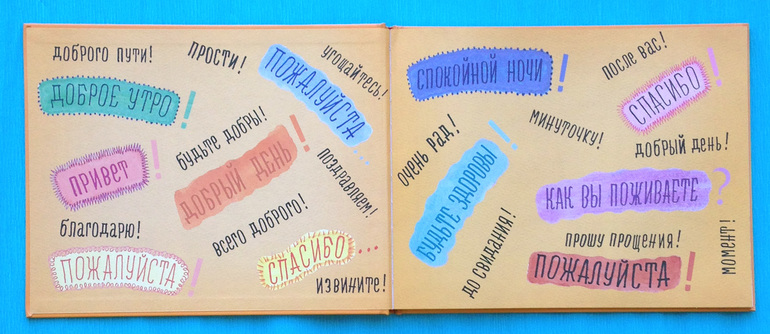 доброго пути!
прости!
угощайтесь!
ПОЖАЛУЙСТА...
ДОБРОЕ УТРО!
будьте добры!
ПРИВЕТ!
ДОБРЫЙ ДЕНЬ!
поздравляем!
благодарю!
всего доброго!
ПОЖАЛУЙСТА!
СПАСИБО...
извините!
СПОКОЙНОЙ НОЧИ!
после вас!
СПАСИБО!
очень рад!
минуточку!
добрый день!
БУДЬТЕ ЗДОРОВЫ!
КАК ВЫ ПОЖИВАЕТЕ?
до свидания!
прошу прощения!
момент!
ПОЖАЛУЙСТА!